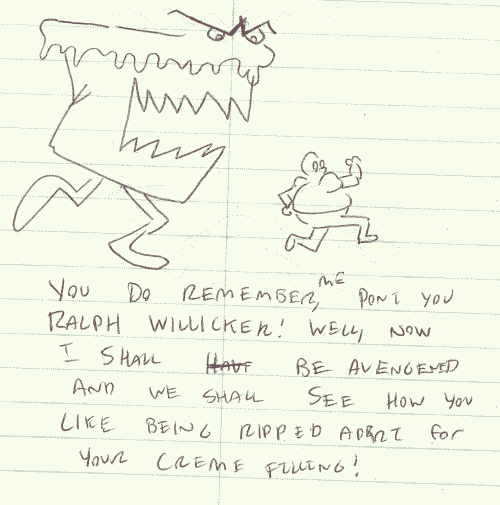 YOU DO REMEMBER, ME DON'T YOU
RALPH WILLICKER! WELL, NOW
I SHALL HAVE BE AVENGED
AND WE SHALL SEE HOW YOU
LIKE BEING RIPPED APART FOR
YOUR CREME FILLING!